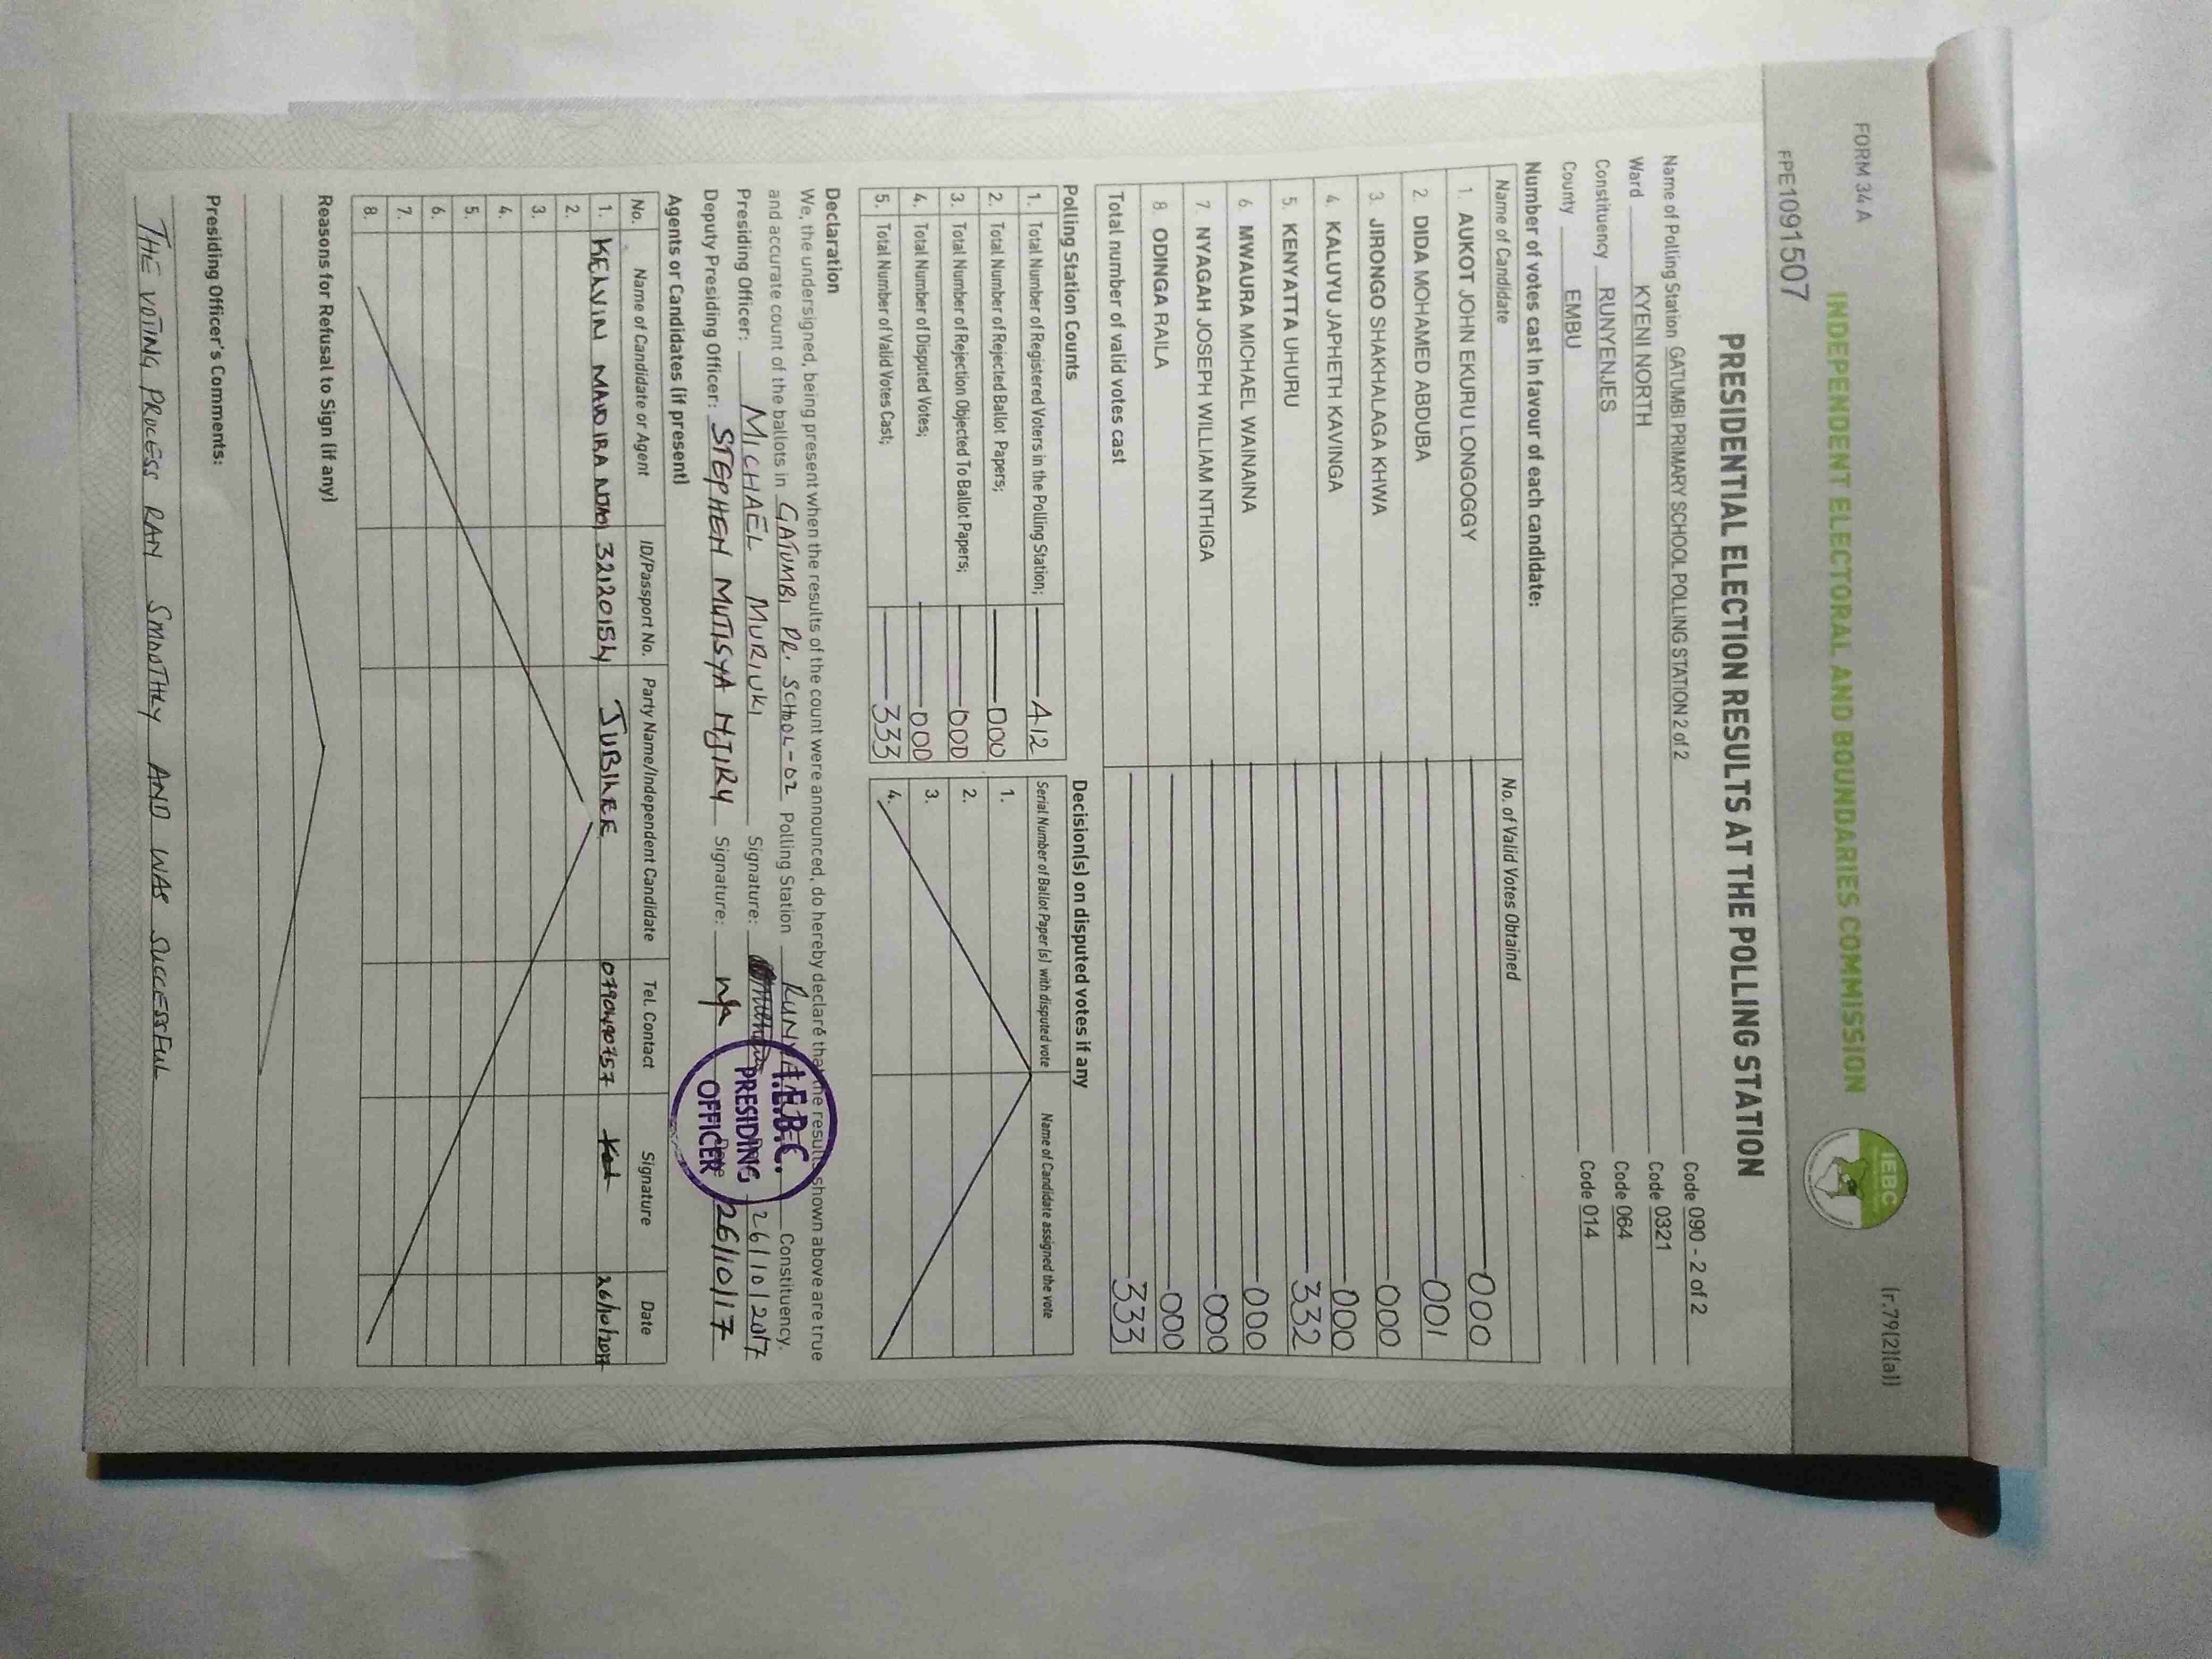 FORM 34 A
(r.79(2)(a))
INDEPENDENT ELECTORAL AND BOUNDARIES COMMISSION
IEBC
FPE1091507
PRESIDENTIAL ELECTION RESULTS AT THE POLLING STATION
Name of Polling Station GATUMBI PRIMARY SCHOOL POLLING STATION 2 of 2 Code 090 - 2 of 2
Ward KYENI NORTH Code 0321
Constituency RUNYENJES Code 064
County EMBU Code 014
Number of votes cast in favour of each candidate:
Name of Candidate No. of Valid Votes Obtained
1. AUKOT JOHN EKURU LONGOGGY 000
2. DIDA MOHAMED ABDUBA 001
3 JIRONGO SHAKHALAGA KHWA 000
4 KALUYU JAPHETH KAVINGA 000
5. KENYATTA UHURU 332
6. MWAURA MICHAEL WAINAINA 000
7. NYAGAH JOSEPH WILLIAM NTHIGA 000
8. ODINGA RAILA 000
Total number of valid votes cast 333
Polling Station Counts
1. Total Number of Registered Voters in the Polling Station; 412
2. Total Number of Rejected Ballot Papers; 000
3. Total Number of Rejection Objected To Ballot Papers; 000
4. Total Number of Disputed Votes; 000
5. Total Number of Valid Votes Cast; 333
Decision(s) on disputed votes if any
Serial Number of Ballot Paper (s) with disputed vote Name of Candidate assigned the vote
1.
2.
3.
4.
Declaration
We, the undersigned, being present when the results of the count were announced, do hereby declare that the results shown above are true
and accurate count of the ballots in GATUMBI PR. SCHOOL-02 Polling Station Constituency.
Presiding Officer: MICHAEL MURIUKI Signature: 26/10/2017
Deputy Presiding Officer: STEPHEN MUTISYA Signature: Date 26/10/17
I.E.B.C.
PRESIDING
OFFICER
Agents or Candidates (if present)
No. Name of Candidate or Agent ID/Passport No. Party Name/Independent Candidate Tel. Contact Signature Date
1. KELVIN 32120154 JUBILEE 0790490757 26/10/2017
2.
3.
4.
5.
6.
7.
8.
Reasons for Refusal to Sign (if any)
Presiding Officer's Comments:
THE VOTING PROCESS RAN SMOOTHLY AND WAS SUCCESSFUL